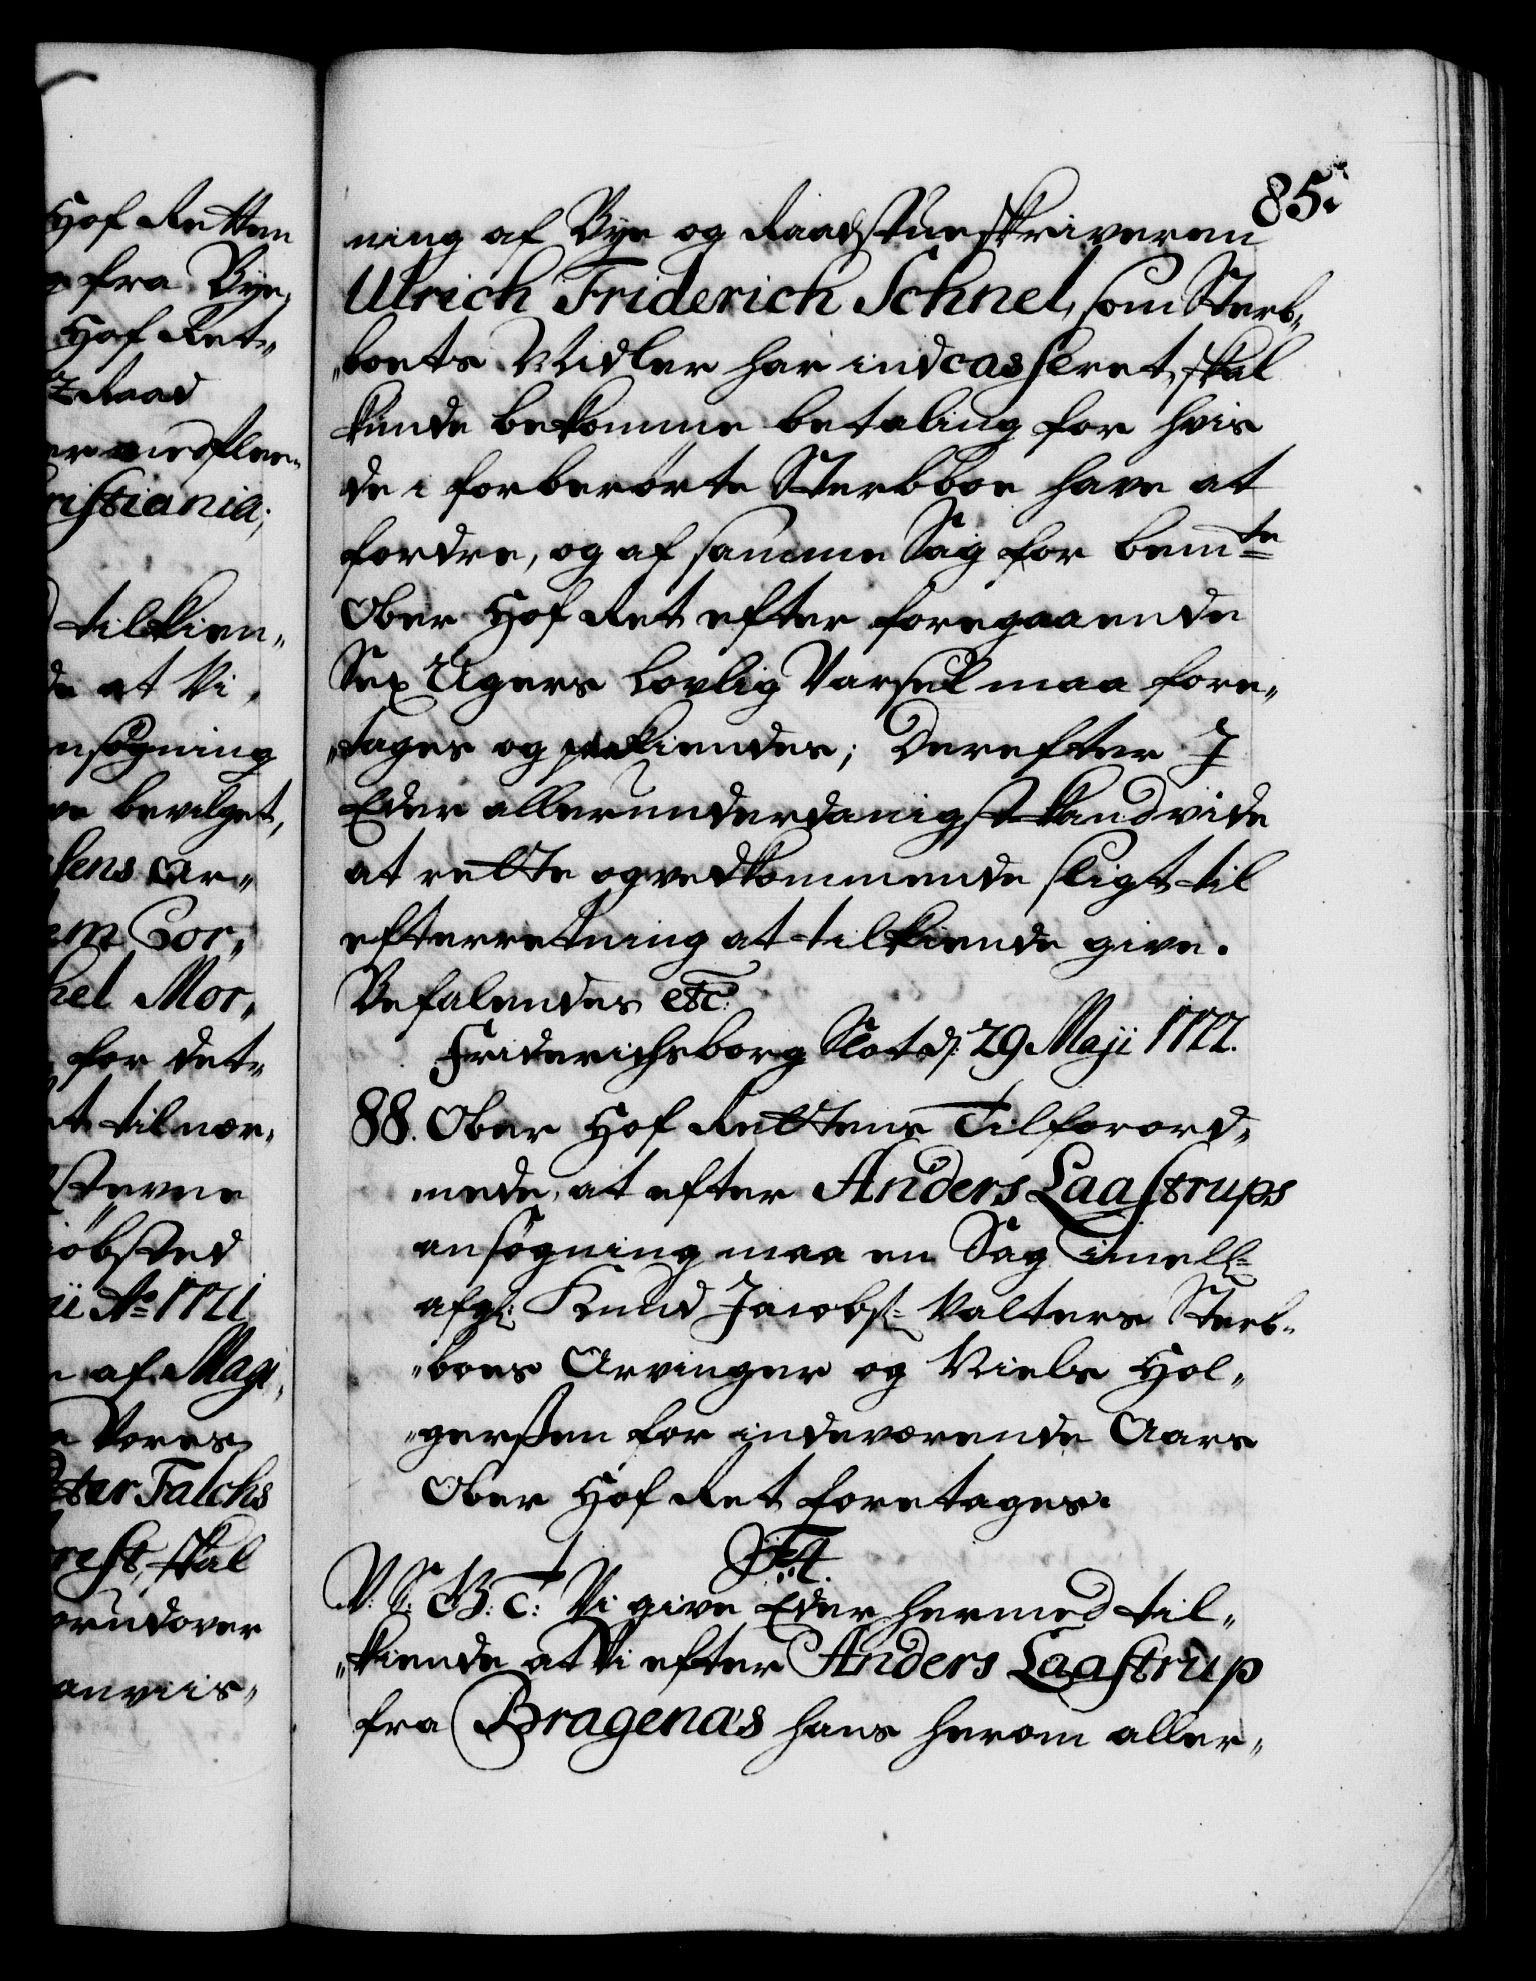 Hof Retten
fra Bye,
Hof Ret„
Raad
Christiania;
tilkien„
de at Vi,
ansøgning
ve bevilget,
sens Ar„
em Cor,
hel Mor,
for det„
et til nær,
stevne
iøbsted
ii Ao 1721
af Magi,
Vores
ter Falchs
rest, skal
orudover
anviis„
85.
ning af Bye og Raadstueskriveren
Ulrich Friderich Schnel, som Sterb„
„boets Midler har indcasseret, skal
kunde bekomme betaling for hvis
de i forberørte Sterbboe have at
fordre, og af samme Sag for bemte
Ober Hof Ret efter foregaaende
Sex Ugers Lovlig Varsel maa fore„
„tages og paakiendes; Derefter I
Eder allerunderdanigst kand vide
at rette og vedkommende sligt til
efterretning at tilkiende give.
Befalendes etc:
Friderichsborg Slot d: 29 Maji 1722.
88. Ober Hof Rettens Tilforord„
nede, at efter Anders Laastrups
ansøgning maa en Sag imell:
afg: Knud Jacobs: Valters Sterb„
„boes Arvinger og Niels Hol„
„gerssen for indeværende Aars
Ober Hof Ret foretages.
F4.
V: S: G: T: Vi give Eder hermed til„
„kiende at Vi efter Anders Laastrup
fra Bragenas hans herom aller„